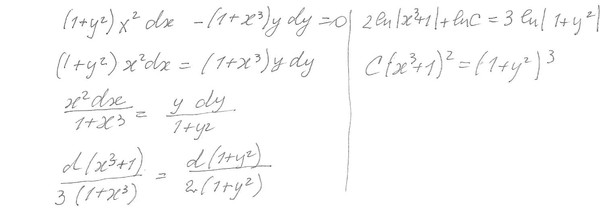 (1+y²) x² dx - (1+x³) y dy = 0
(1+y²) x² dx = (1+x³) y dy
x² dx / 1+x³ = y dy / 1+y²
d(x³+1) / 3(1+x³) = d(1+y²) / 2(1+y²)
2 ln|x³+1| + ln C = 3 ln|1+y²|
C(x³+1)² = (1+y²)³